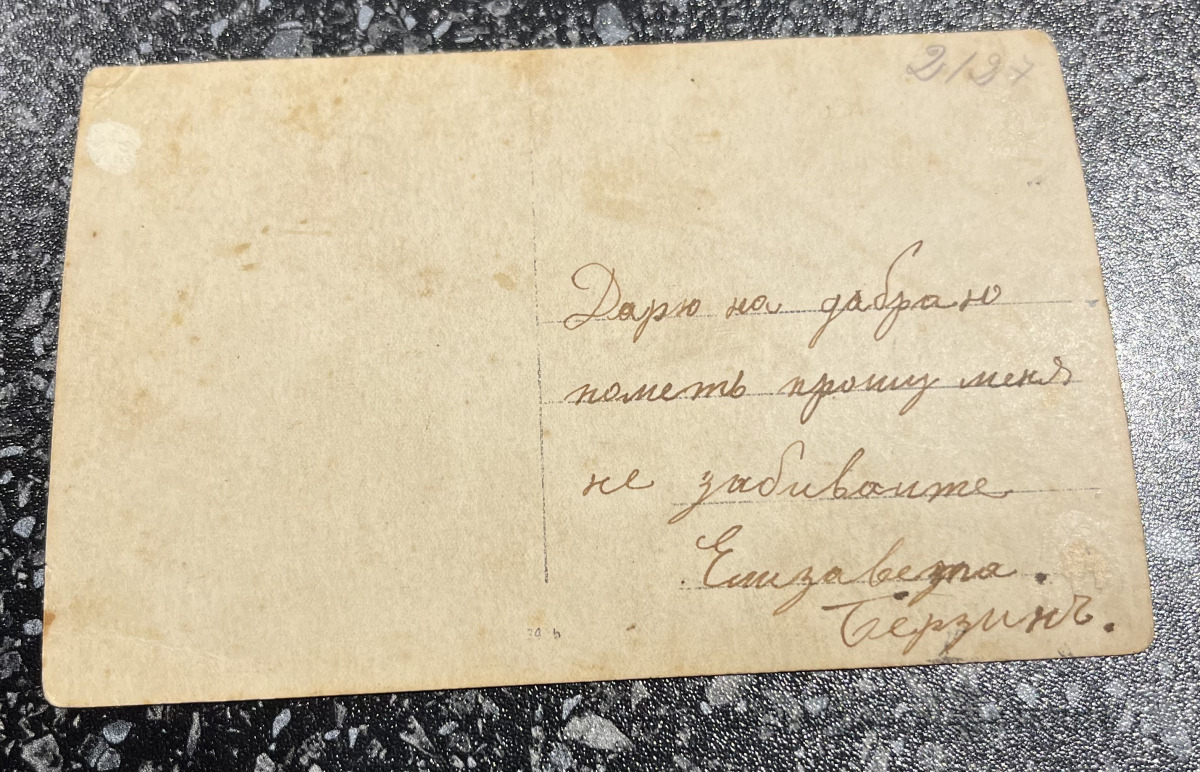 2127
Дарю на дабраю
пометь прошу меня
не забивайте
Елизавета.
Берзинъ.